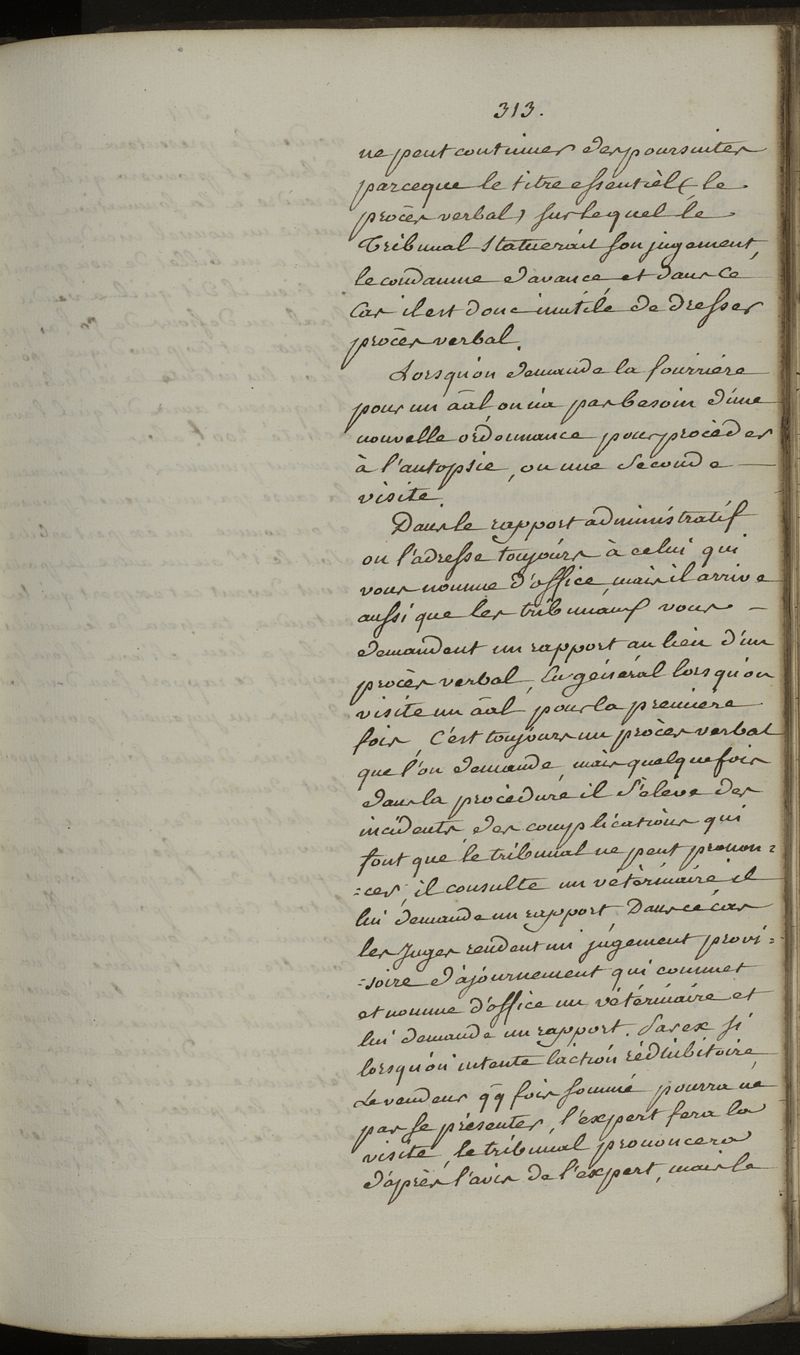 313.
ne peut continuer des poursuites
parceque le titre essentièl (le
procès verbal) sur lequel le
Tribunal statuerait son jugement,
le condamne d'avance et dans ce
Cas il est donc inutile de dresser
procès verbal.
Lorsqu'on demande la fourrière
pour un aal on n'a pas besoin d'une
nouvelle ordonnance pour procèder
à l'autopsie, ou une seconde —
visite.
Dans le rapport administratif
on l'adresse toujours à celui qui
vous nomme d'office, mais il arrive
aussi que les tribunaux vous —
demandent un rapport au lieu d'un
procès verbal, En général lorsqu'on
visite un aal pour la première
fois, C'est toujours un procès verbal
que l'on demande, mais quelquefois
dans la procèdure il s'élève des
incidents des complications qui
font que le tribunal ne peut pronon=
=cer, il consulte un vétèrinaire il
lui demande un rapport. Dans ce cas
les Juges rendent un jugement provi=
=soire d'ajournement qui commet
et nomme d'office un vétérinaire et
lui demande un rapport. Par ex si
lorsqu'on intente l'action rédhibitoire
Le vendeur qq fois sommé pourra ne
pas se présenter, l'expert fera la
visite, le tribunal prononcera
d'après l'avis de l'expert, mais le